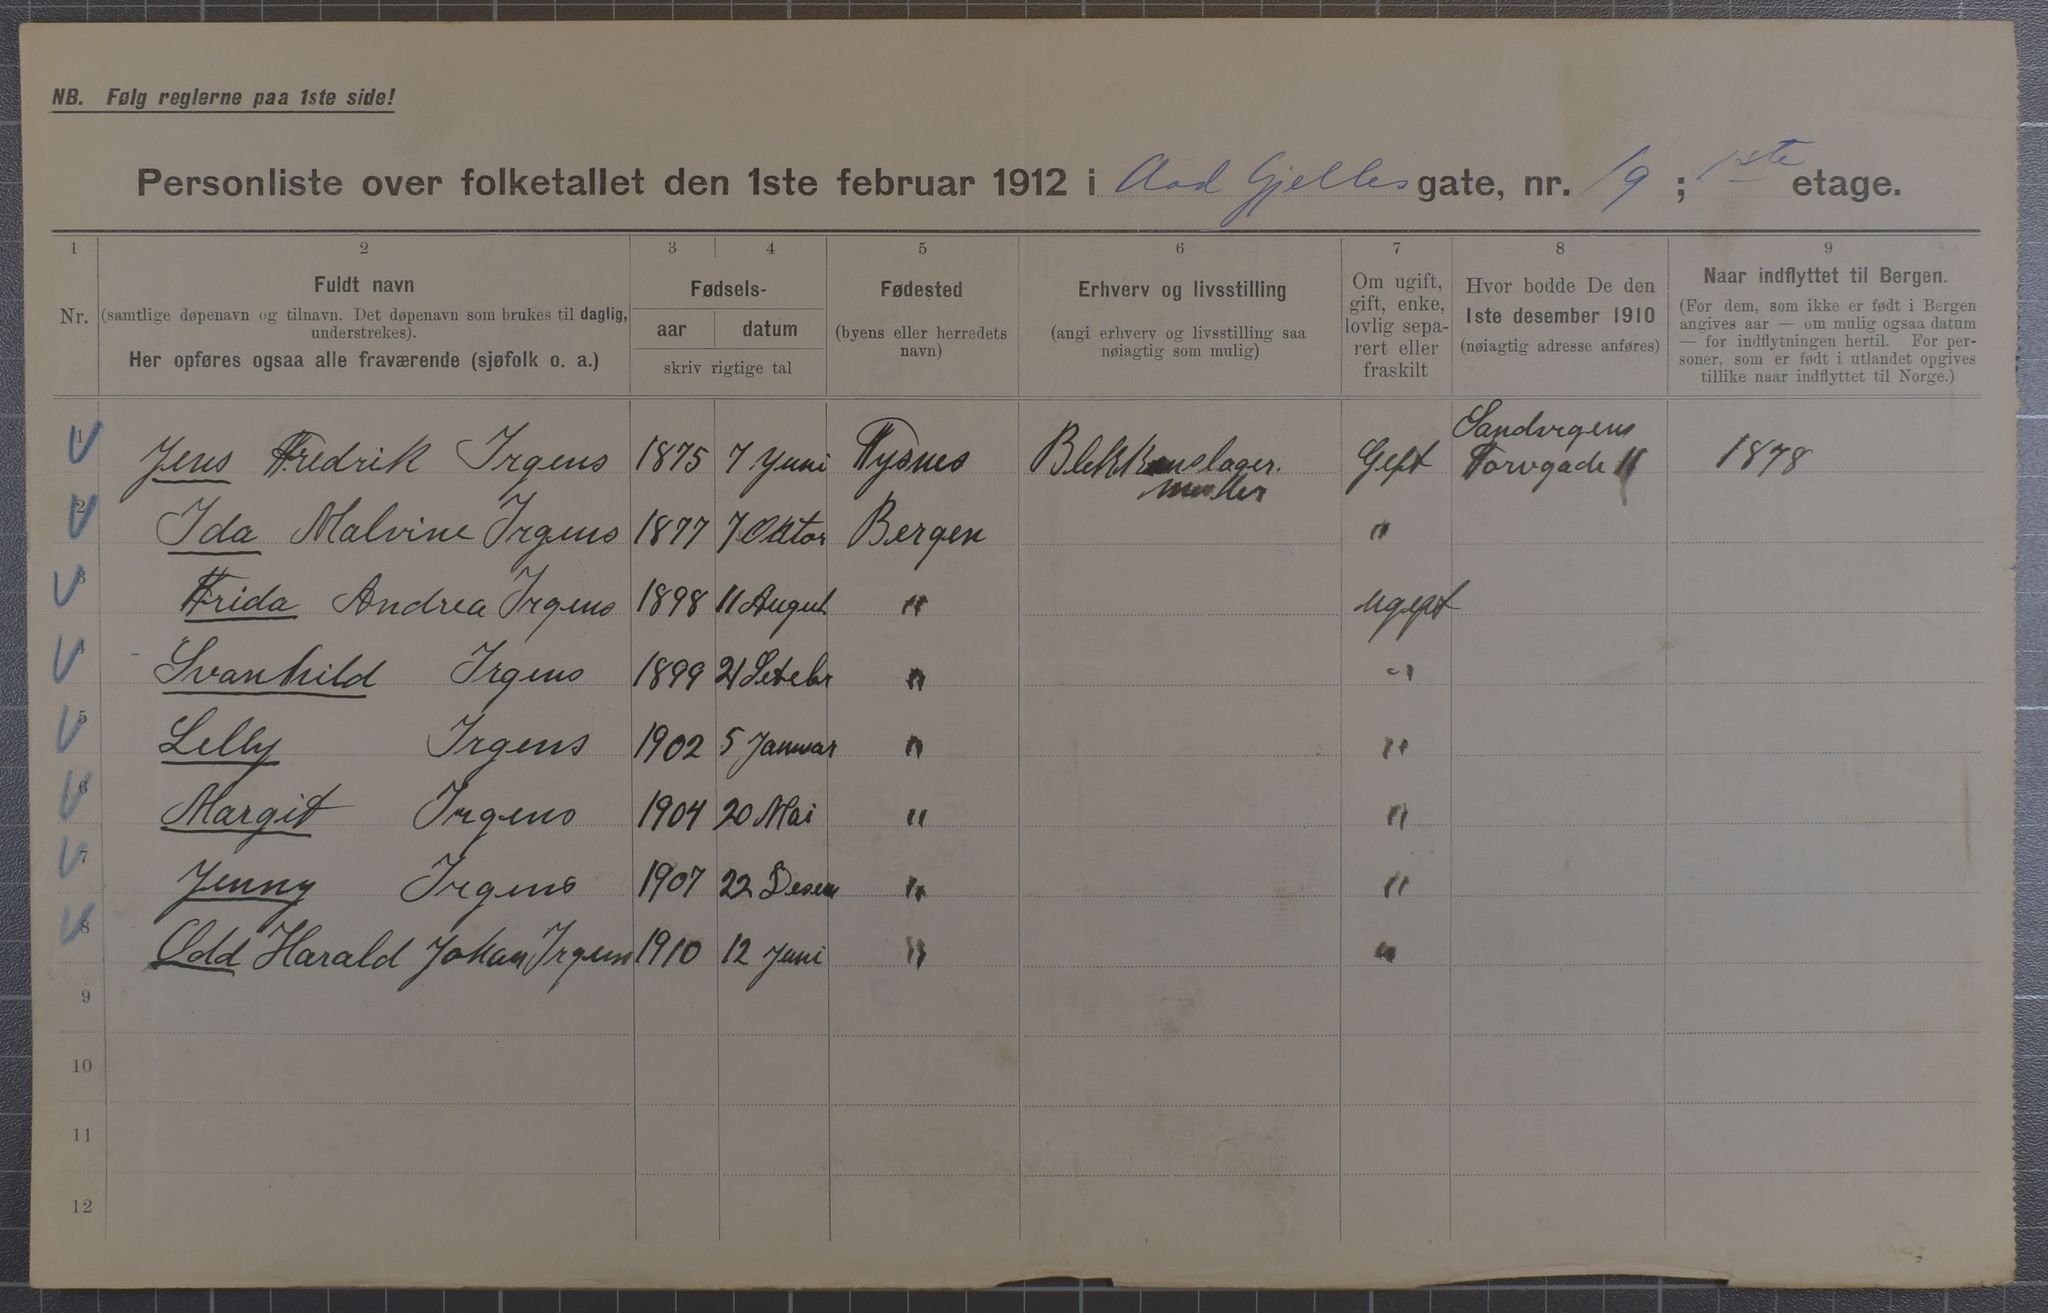 NB. Følg reglerne paa 1ste side!
Personliste over folketallet den 1ste februar 1912 i Aad Gjelles gate, nr. 19 ; 1ste etage.
1 2 3 4 5 6 7 8 9
Nr.
Fuldt navn
(samtlige døpenavn og tilnavn. Det døpenavn som brukes til daglig, understrekes).
Her opføres ogsaa alle fraværende (sjøfolk o. a.)
Fødsels-
aar datum
skriv rigtige tal
Fødested
(byens eller herredets navn)
Erhverv og livsstilling
(angi erhverv og livsstilling saa nøiagtig som mulig)
Om ugift, gift, enke, lovlig sepa-rert eller fraskilt
Hvor bodde De den 1ste desember 1910
(nøiagtig adresse anføres)
Naar indflyttet til Bergen.
(For dem, som ikke er født i Bergen angives aar — om mulig ogsaa datum — for indflytningen hertil. For per-soner, som er født i utlandet opgives tillike naar indflyttet til Norge.)
1 Jens Fredrik Irgens 1875 7 Juni Tysnes Blikkenslager. Gift Sandvigens Torvgade 11 1878
2 Ida Malvine Irgens 1877 7 Oktor Bergen "
3 Frida Andrea Irgens 1898 11 August " ugift
4 Svanhild Irgens 1899 21 " "
5 Lelly Irgens 1902 5 Januar " "
6 Margit Irgens 1904 20 Mai " "
7 Jenny Irgens 1907 22 Desem " "
8 Odd Harald Johan Irgens 1910 12 Juni " "
9
10
11
12